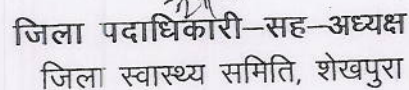 जिला पदाधिकारी–सह–अध्यक्ष
जिला स्वास्थ्य समिति, शेखपुरा